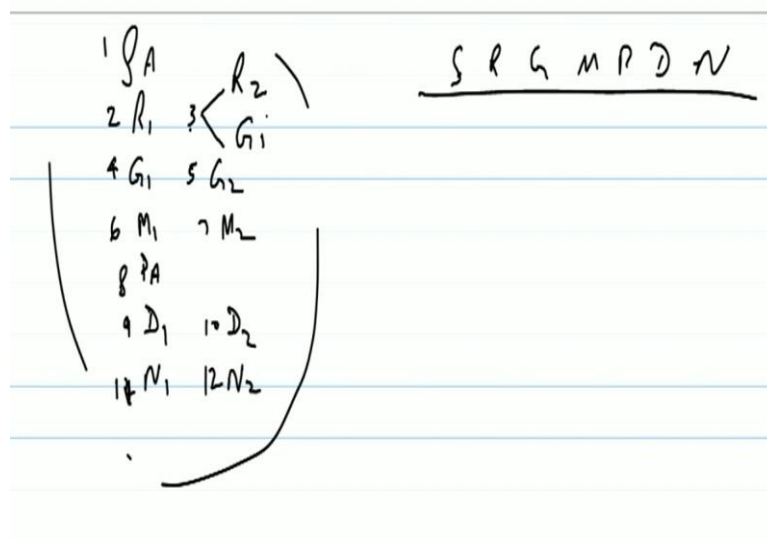 1 SA
2 R1 3 < R2
Gi
4 G1 5 G2
6 M1 7 M2
8 PA
9 D1 10 D2
11 N1 12 N2
S R G M P D N